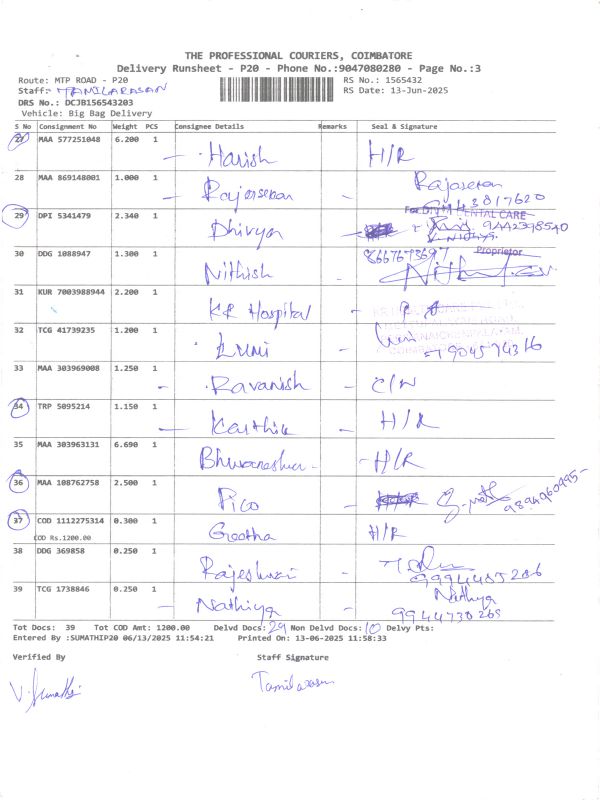 THE PROFESSIONAL COURIERS, COIMBATORE
Delivery Runsheet - P20 - Phone No.:9047080280 - Page No.:3
Route: MTP ROAD - P20 RS No.: 1565432
Staff: TAMILARASAN RS Date: 13-Jun-2025
DRS No.: DCJB156543203
Vehicle: Big Bag Delivery
S No Consignment No Weight PCS Consignee Details Remarks Seal & Signature
27 MAA 577251048 6.200 1 - Harish H/R
28 MAA 869148001 1.000 1 - Rajaseran - Rajaseran
3817620
29 DPI 5341479 2.340 1 Dhivya - DENTAL CARE
9442398540
Proprietor
30 DDG 1088947 1.300 1 Nithish 8667673697
31 KUR 7003988944 2.200 1 KR Hospital -
32 TCG 41739235 1.200 1 -
7904574316
33 MAA 303969008 1.250 1 - Ravanish - C/N
34 TRP 5095214 1.150 1 - Karthik - H/R
35 MAA 303963131 6.690 1 Bhuvaneshwar - H/R
36 MAA 108762758 2.500 1 Pico -
37 COD 1112275314 0.300 1 Geetha H/R
COD Rs.1200.00
38 DDG 369858 0.250 1 Rajeshwari -
9994455286
39 TCG 1738846 0.250 1 - Nathiya Nathiya
9944730265
Tot Docs: 39 Tot COD Amt: 1200.00 Delvd Docs: 29 Non Delvd Docs: 10 Delvy Pts:
Entered By :SUMATHIP20 06/13/2025 11:54:21 Printed On: 13-06-2025 11:58:33
Verified By Staff Signature
V. Sumathi Tamilarasan